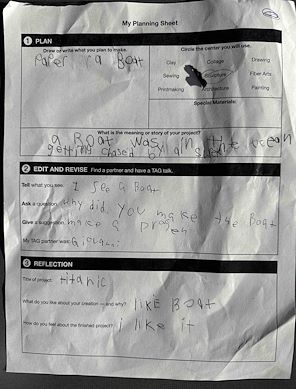 My Planning Sheet
1 PLAN
Draw or write what you plan to make.
Circle the center you will use.
a Boat
Clay Collage Drawing
Sewing Sculpture Fiber Arts
Printmaking Architecture Painting
Special Materials:
What is the meaning or story of your project?
a Boat was in the ocean
getting chased by an
2 EDIT AND REVISE Find a partner and have a TAG talk.
Tell what you see. I see a Boat
Ask a question. why did you make the Boat
Give a suggestion. make a
My TAG partner was:
3 REFLECTION
Title of project: titanic
What do you like about your creation — and why? I like Boat
How do you feel about the finished project? I like it